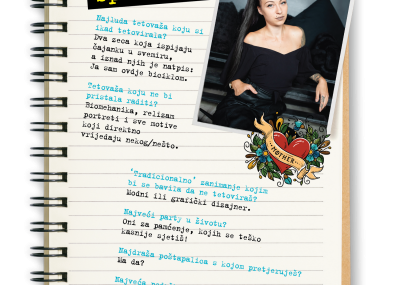 Najluđa tetovaža koju si
ikad tetovirala?
Dva zeca koja ispijaju
čajanku u svemiru,
a iznad njih je natpis:
Ja sam ovdje biciklom.
Tetovaža koju ne bi
pristala raditi?
Biomehanika, relizam
portreti i sve motive
koji direktno
vrijeđaju nekog/nešto.
MOTHER
'Tradicionalno' zanimanje kojim
bi se bavila da ne tetoviraš?
Modni ili grafički dizajner.
Najveći party u životu?
Oni za pamćenje, kojih se teško
kasnije sjetiš!
Najdraža poštapalica s kojom pretjeruješ?
Ma da?
Najveća